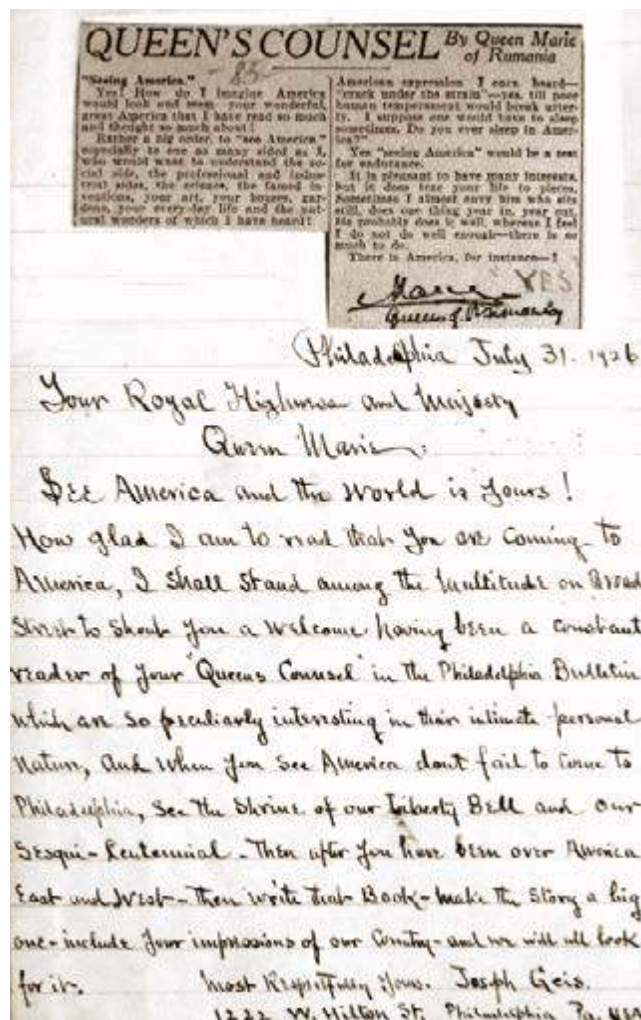 QUEEN'S COUNSEL By Queen Marie
of Rumania
"Seeing America."
- 83 -
Yes! How do I imagine America
would look and seem your wonderful,
great America that I have read so much
and thought so much about!
Rather a big order, to "see America,"
especially to one so many sided as I,
who would want to understand the so-
cial side, the professional and indus-
trial sides, the science, the famed in-
ventions, your art, your houses, gar-
dens, your every-day life and the nat-
ural wonders of which I have heard!
American expression I once heard—
"crack under the strain"—yes, till poor
human temperament would break utter-
ly. I suppose one would have to sleep
sometimes. Do you ever sleep in Amer-
ica?
Yes "seeing America" would be a test
for endurance.
It is pleasant to have many interests,
but it does tear your life to pieces.
Sometimes I almost envy him who sits
still, does one thing year in, year out.
He probably does it well, whereas I feel
I do not do well enough—there is so
much to do.
There is America, for instance—!
YES
Marie
Queen of Rumania
Philadelphia July 31. 1926
Your Royal Highness and Majesty
Queen Marie
See America and the World is Yours!
How glad I am to read that you are coming to
America, I shall stand among the multitude on Broad
Street to shout you a welcome having been a constant
reader of your "Queens Counsel" in the Philadelphia Bulletin
which are so peculiarly interesting in their intimate personal
nature, and when you see America dont fail to come to
Philadelphia, see the shrine of our Liberty Bell and our
Sesqui-Centennial - Then after you have been over America
East and West - then write that Book - make the story a big
one - include your impressions of our Country - and we will all look
for it. Most Respectfully Yours. Joseph Geis.
1222 W. Hilton St. Philadelphia Pa. USA